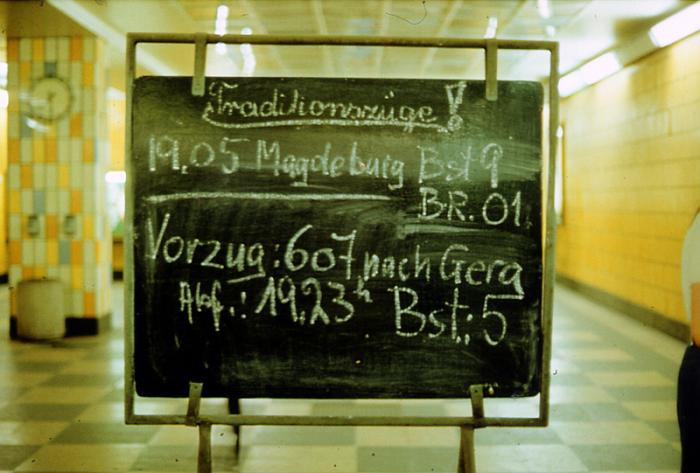 Traditionszüge!
19.05 Magdeburg Bst 9
BR. 01
Vorzug: 607 nach Gera
Abf.: 19.23h Bst.: 5